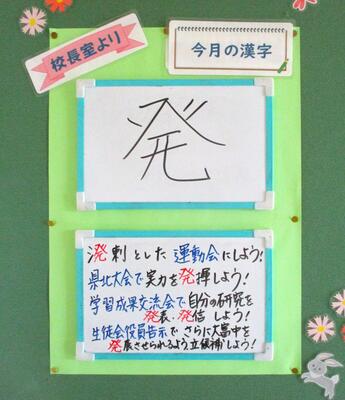 校長室より
今月の漢字
発
溌剌とした運動会にしよう!
県北大会で実力を発揮しよう!
学習成果交流会で自分の研究を
発表・発信しよう!
生徒会役員告示でさらに を
発展させられるよう立候補しよう!